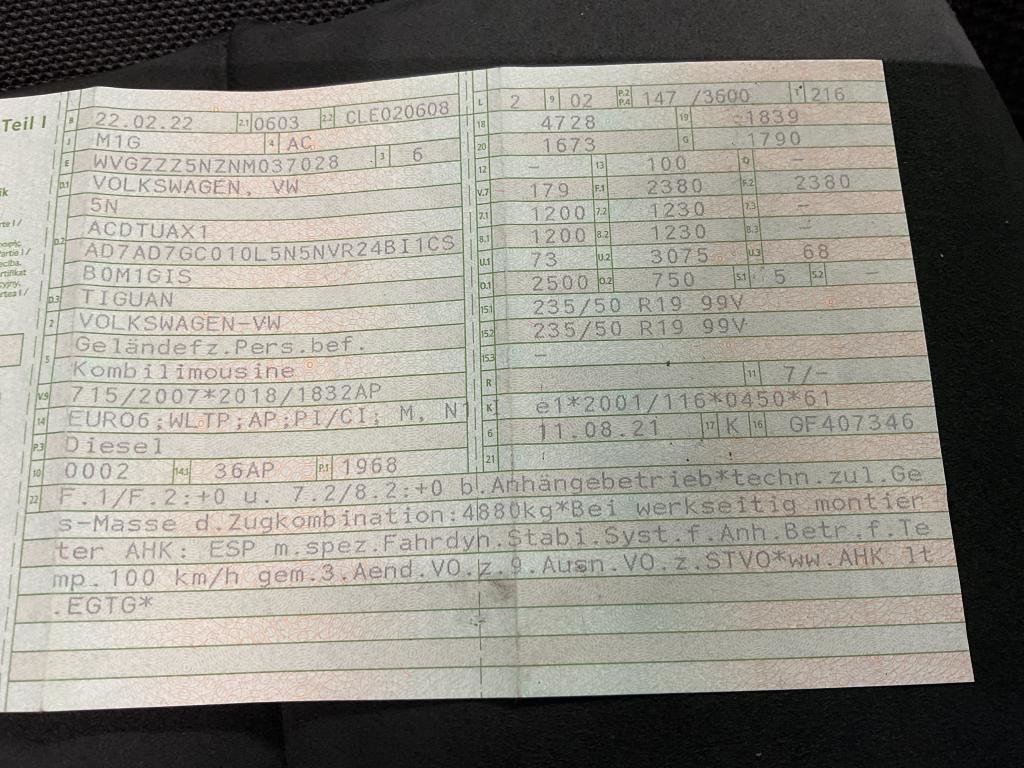 Teil I
B 22.02.22 2.1 0603 2.2 CLE020608
J M1G 4 AC
E WVGZZZ5NZNM037028 3 6
D.1 VOLKSWAGEN, VW
5N
D.2 ACDTUAX1
AD7AD7GC010L5N5NVR24BI1CS
B0M1GIS
D.3 TIGUAN
2 VOLKSWAGEN-VW
5 Geländefz.Pers.bef.
Kombilimousine
V.9 715/2007*2018/1832AP
14 EURO6;WLTP;AP;PI/CI; M, N1
P.3 Diesel
10 0002 14.1 36AP P.1 1968
L 2 9 02 P.2 P.4 147 /3600 T 216
18 4728 19 1839
20 1673 G 1790
12 - 13 100 Q -
V.7 179 F.1 2380 F.2 2380
7.1 1200 7.2 1230 7.3 -
8.1 1200 8.2 1230 8.3 -
U.1 73 U.2 3075 U.3 68
O.1 2500 O.2 750 S.1 5 S.2 -
15.1 235/50 R19 99V
15.2 235/50 R19 99V
15.3 -
R 11 7/-
K e1*2001/116*0450*61
6 11.08.21 17 K 16 GF407346
21
22 F.1/F.2:+0 u. 7.2/8.2:+0 b.Anhängebetrieb*techn.zul.Ge
s-Masse d.Zugkombination:4880kg*Bei werkseitig montier
ter AHK: ESP m.spez.Fahrdyh.Stabi.Syst.f.Anh.Betr.f.Te
mp.100 km/h gem.3.Aend.VO.z.9.Ausn.VO.z.STVO*ww.AHK lt
.EGTG*